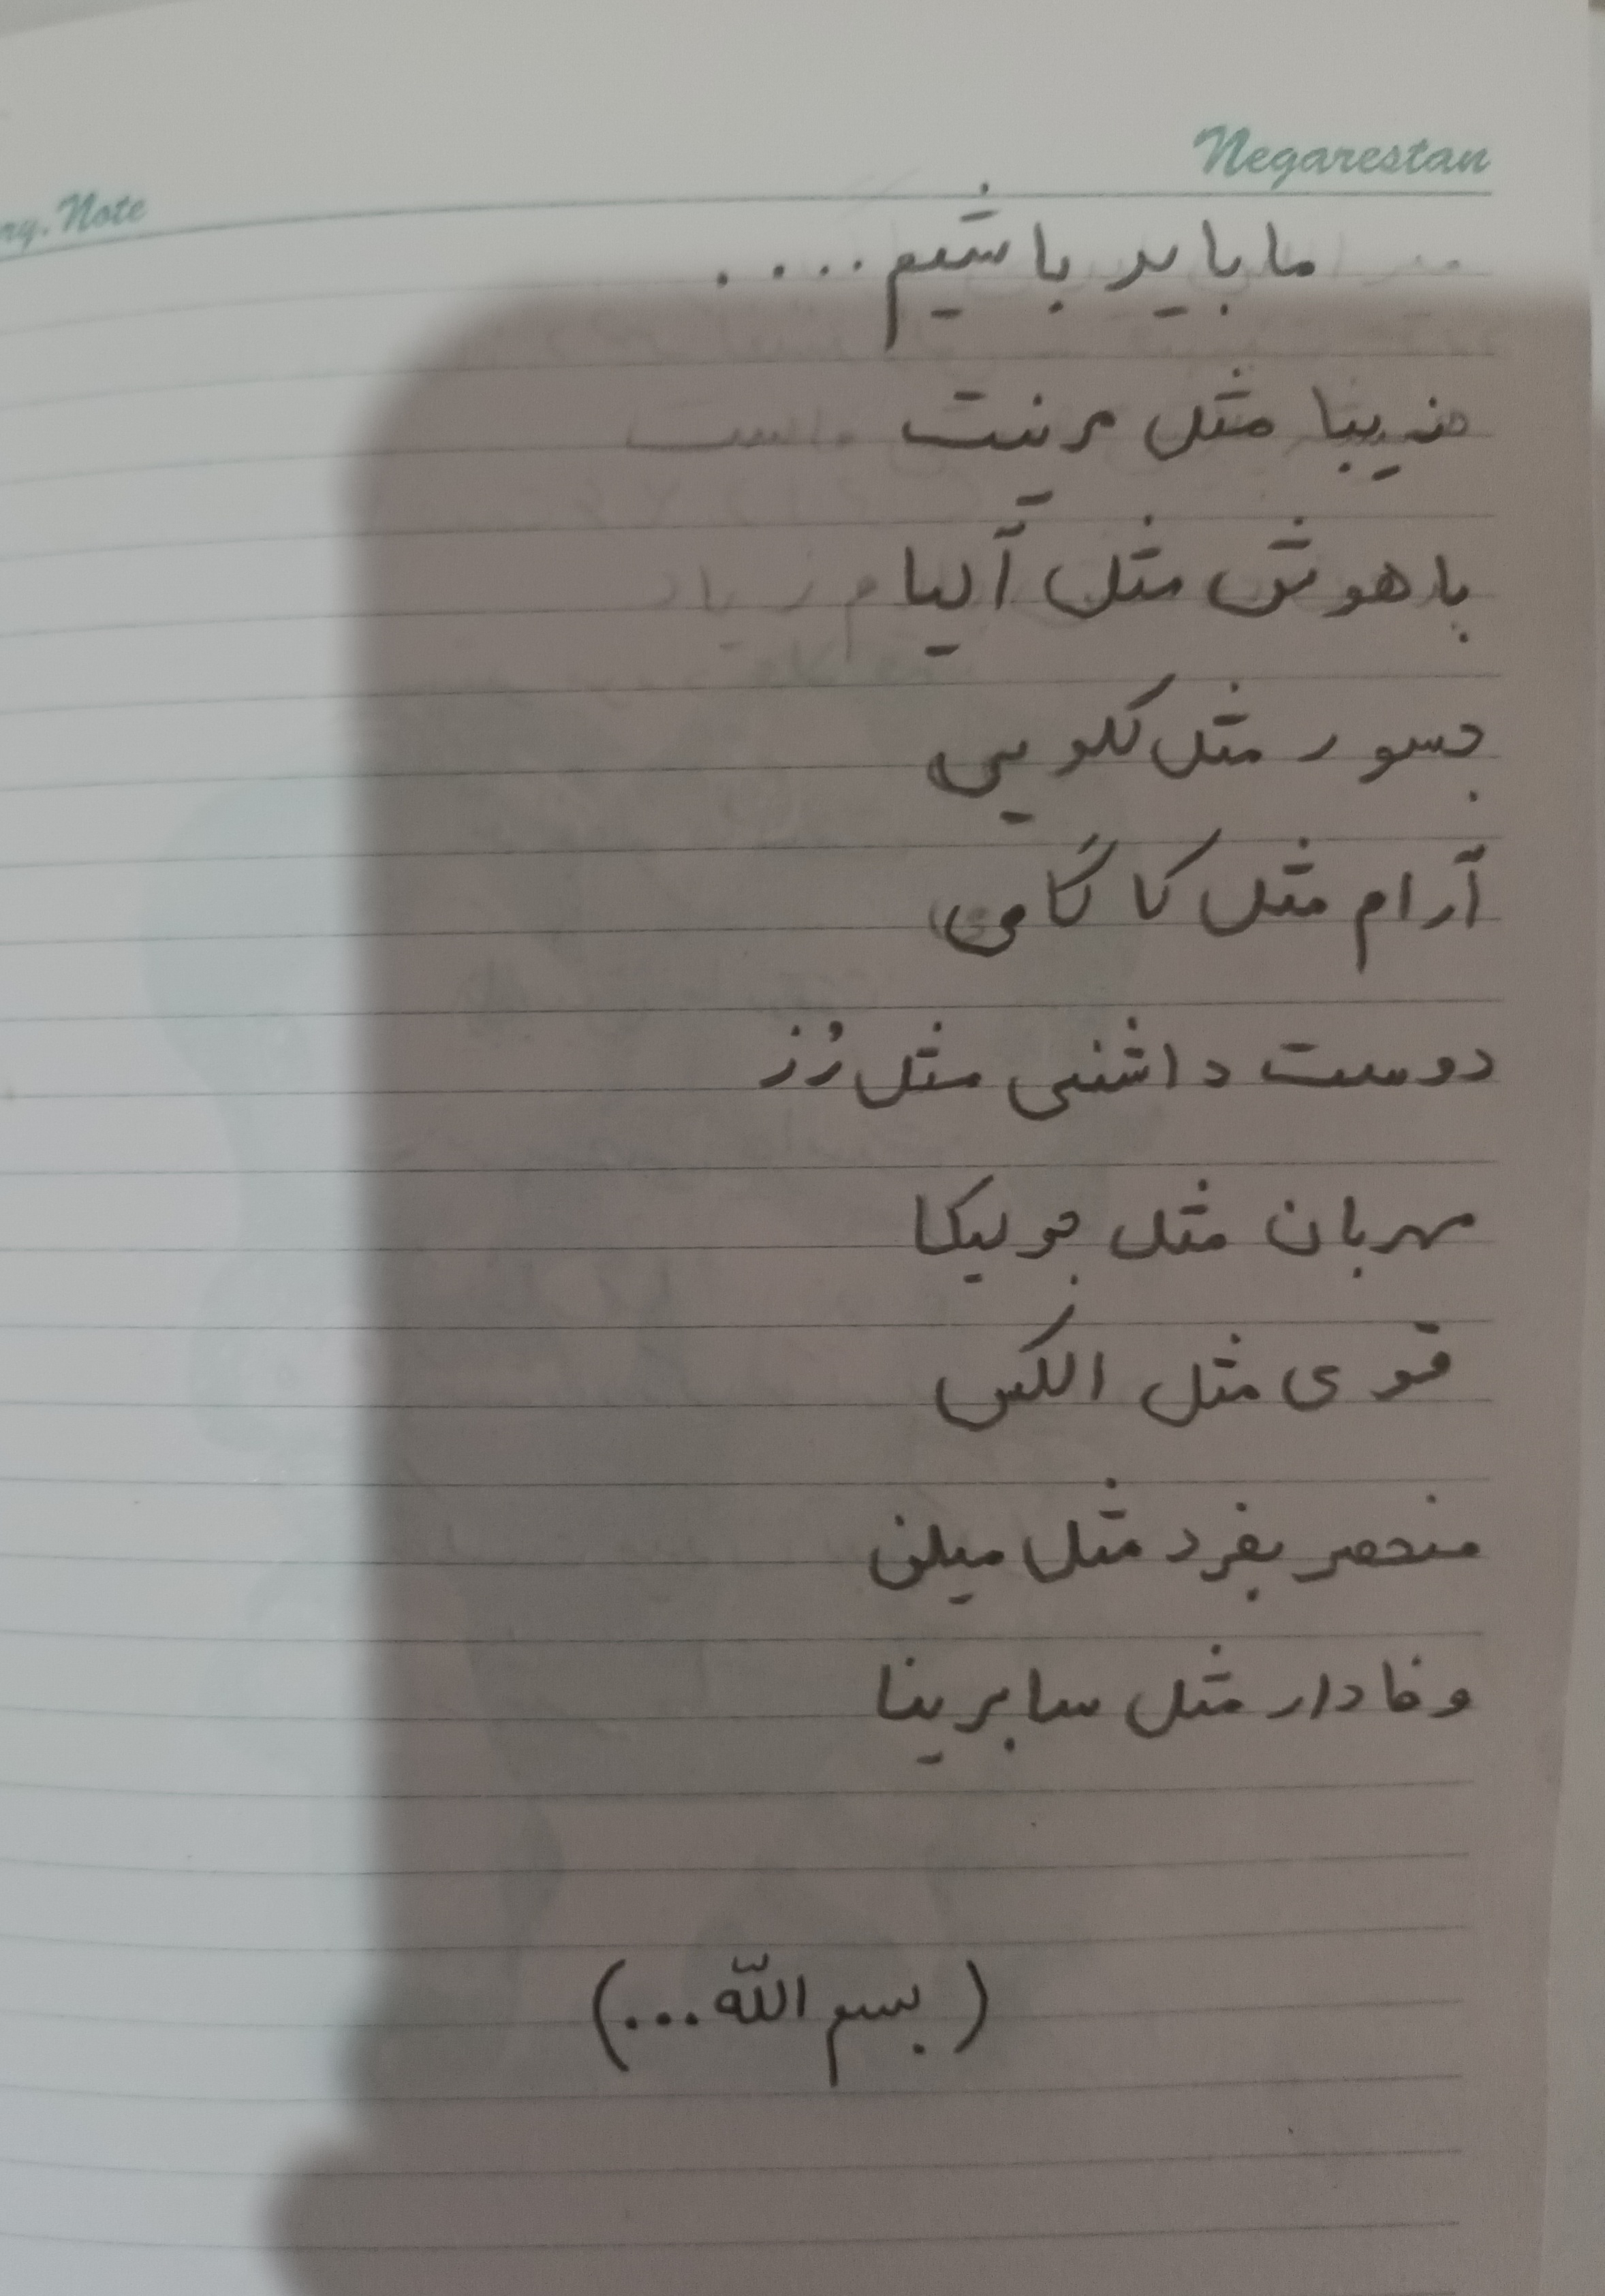 Negarestan
ry. Note
ما باید باشیم....
زیبا مثل مرینت
باهوش مثل آلیا
جسور مثل کلویی
آرام مثل کاگامی
دوست داشتنی مثل رُز
مهربان مثل جولیکا
قوی مثل الکس
منحصر بفرد مثل میلن
وفادار مثل سابرینا
(بسم اللّه...)